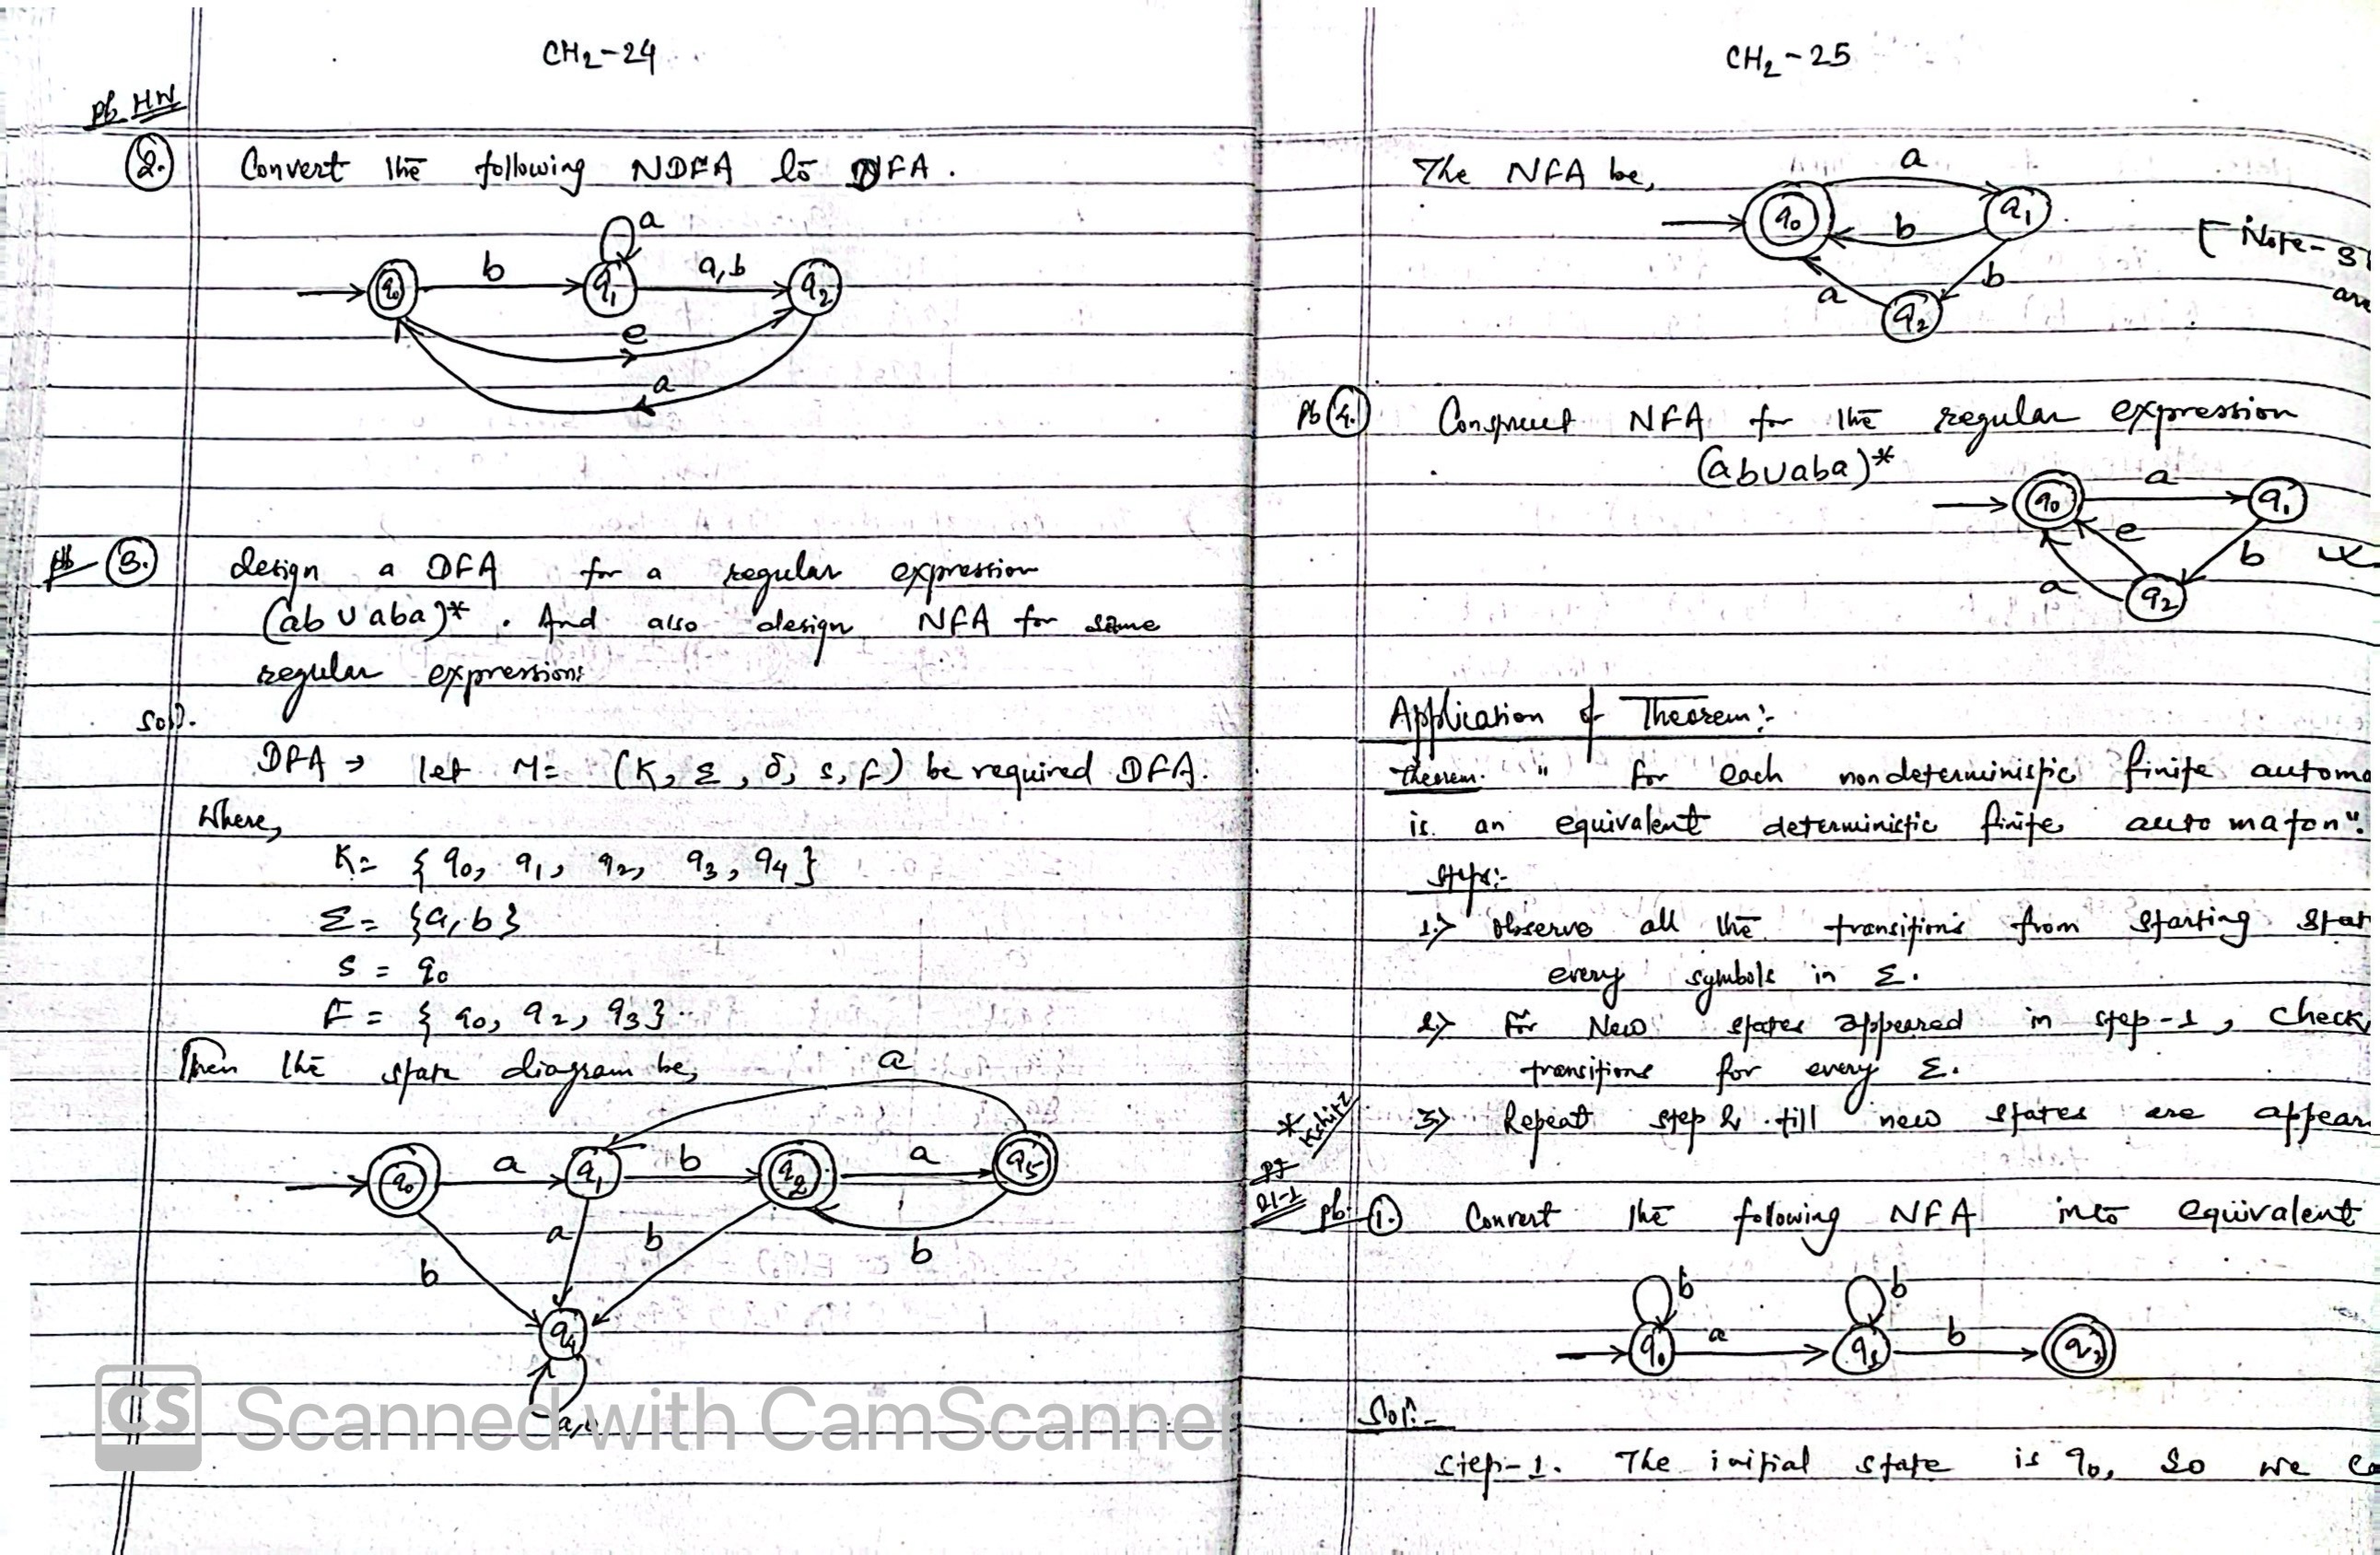 CH2-24
pb HW
2. Convert the following NDFA to DFA.
a
b
a,b
q0
q1
q2
e
a
pb 3. design a DFA for a regular expression
(ab ∪ aba)*. And also design NFA for same
regular expression:
Soln.
DFA → let M = (K, Σ, δ, s, F) be required DFA.
Where,
K = {q0, q1, q2, q3, q4}
Σ = {a, b}
s = q0
F = {q0, q2, q3}
Then the state diagram be,
a
q0
a
q1
b
q2
a
b
a
b
b
q4
CS Scanned with CamScanner
CH2-25
The NFA be,
a
q0
q1
b
[Note-
b
a
q2
pb 4. Construct NFA for the regular expression
(ab∪aba)*
q0
a
q1
e
b
a
q2
Application of Theorem:-
Theorem. " for each nondeterministic finite automa
is an equivalent deterministic finite automaton".
Steps:-
1.> Observe all the transitions from starting stat
every symbols in Σ.
2.> for New states appeared in step-1, check
transitions for every Σ.
3.> Repeat step 2 till new states are appear
* Kshitz
pb. 1. Convert the following NFA into equivalent
b
b
q0
a
q1
b
q2
Sol:-
Step-1. The initial state is q0, So we